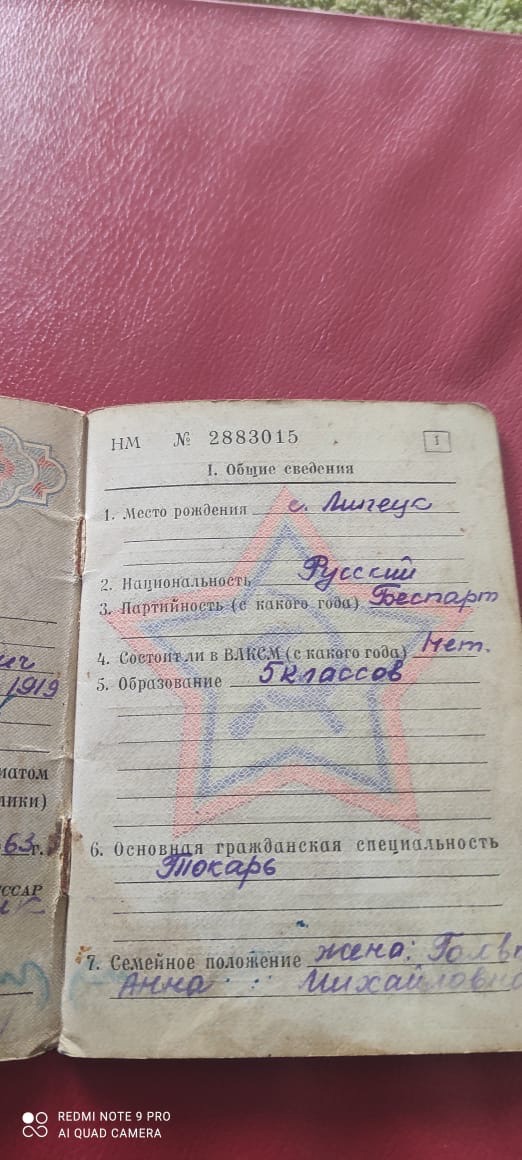 НМ № 2883015
1
I. Общие сведения
1. Место рождения с. Липецк
2. Национальность Русский
3. Партийность (с какого года) Беспарт
4. Состоит ли в ВЛКСМ (с какого года) Нет.
5. Образование 5 классов
6. Основная гражданская специальность
Токарь
7. Семейное положение жена:
Анна Михайловна
ич
1919
матом
лики)
63 г.
ССАР
REDMI NOTE 9 PRO
AI QUAD CAMERA